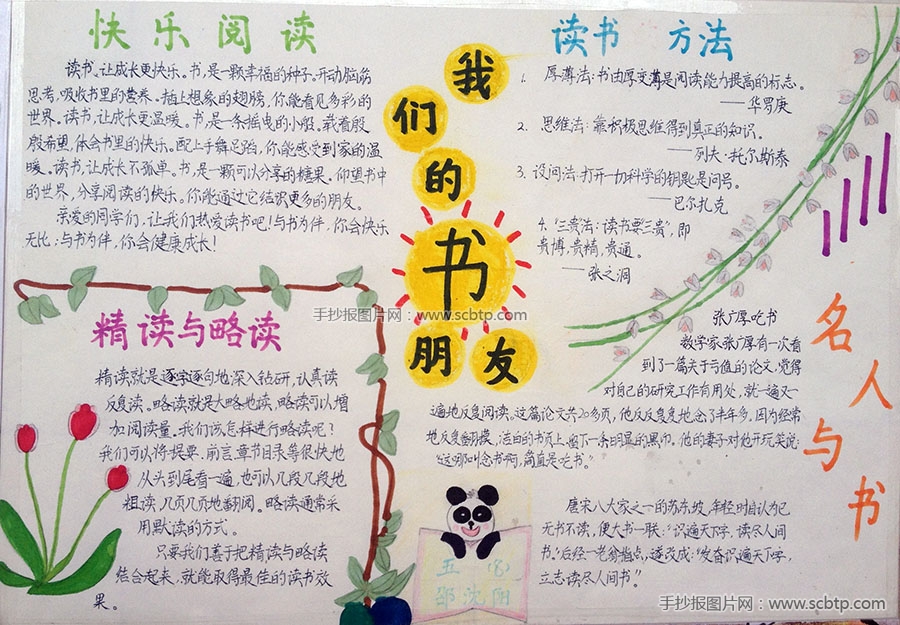 快乐阅读
读书、让成长更快乐。书，是一颗幸福的种子。开动脑筋
思考，吸收书里的营养。插上想象的翅膀，你能看见多彩的
世界。读书，让成长更温暖。书，是一条摇曳的小船。载着殷
殷希望，体会书里的快乐。配上手舞足蹈，你能感受到家的温
暖。读书，让成长不孤单。书，是一颗可以分享的糖果。仰望书中
的世界，分享阅读的快乐。你能通过它结识更多的朋友。
亲爱的同学们，让我们热爱读书吧！与书为伴，你会快乐
无比；与书为伴，你会健康成长！
精读与略读
精读就是逐字逐句地深入钻研，认真读
反复读。略读就是大略地读，略读可以增
加阅读量。我们该怎样进行略读呢？
我们可以将提要、前言章节目录等很快地
从头到尾看一遍，也可以几段几段地
粗读、几页几页地翻阅。略读通常采
用默读的方式。
只要我们善于把精读与略读
结合起来，就能取得最佳的读书效
果。
我
们
的
书
朋
友
读书 方法
1. 厚薄法：书由厚变薄是阅读能力提高的标志。
——华罗庚
2. 思维法：靠积极思维得到真正的知识。
——列夫·托尔斯泰
3. 设问法：打开一切科学的钥匙是问号。
——巴尔扎克
4. "三贵法：读书要三贵"，即
贵博，贵精，贵通。
——张之洞
名人与书
张广厚吃书
数学家张广厚有一次看
到了一篇关于亏值的论文，觉得
对自己的研究工作有用处，就一遍又一
遍地反复阅读。这篇论文共20多页，他反反复复地念了半年多，因为经常
地反复翻摸，洁白的书页上，留下一条明显的黑巾。他的妻子对他开玩笑说：
"这哪叫念书啊，简直是吃书。"
唐宋八大家之一的苏东坡，年轻时自认为已
无书不读，便大书一联："识遍天下字，读尽人间
书。"后经一老翁指点，遂改成："发奋识遍天下字，
立志读尽人间书"。
五（8）
邵沈阳
手抄报图片网：www.scbtp.com
手抄报图片网：www.scbtp.com